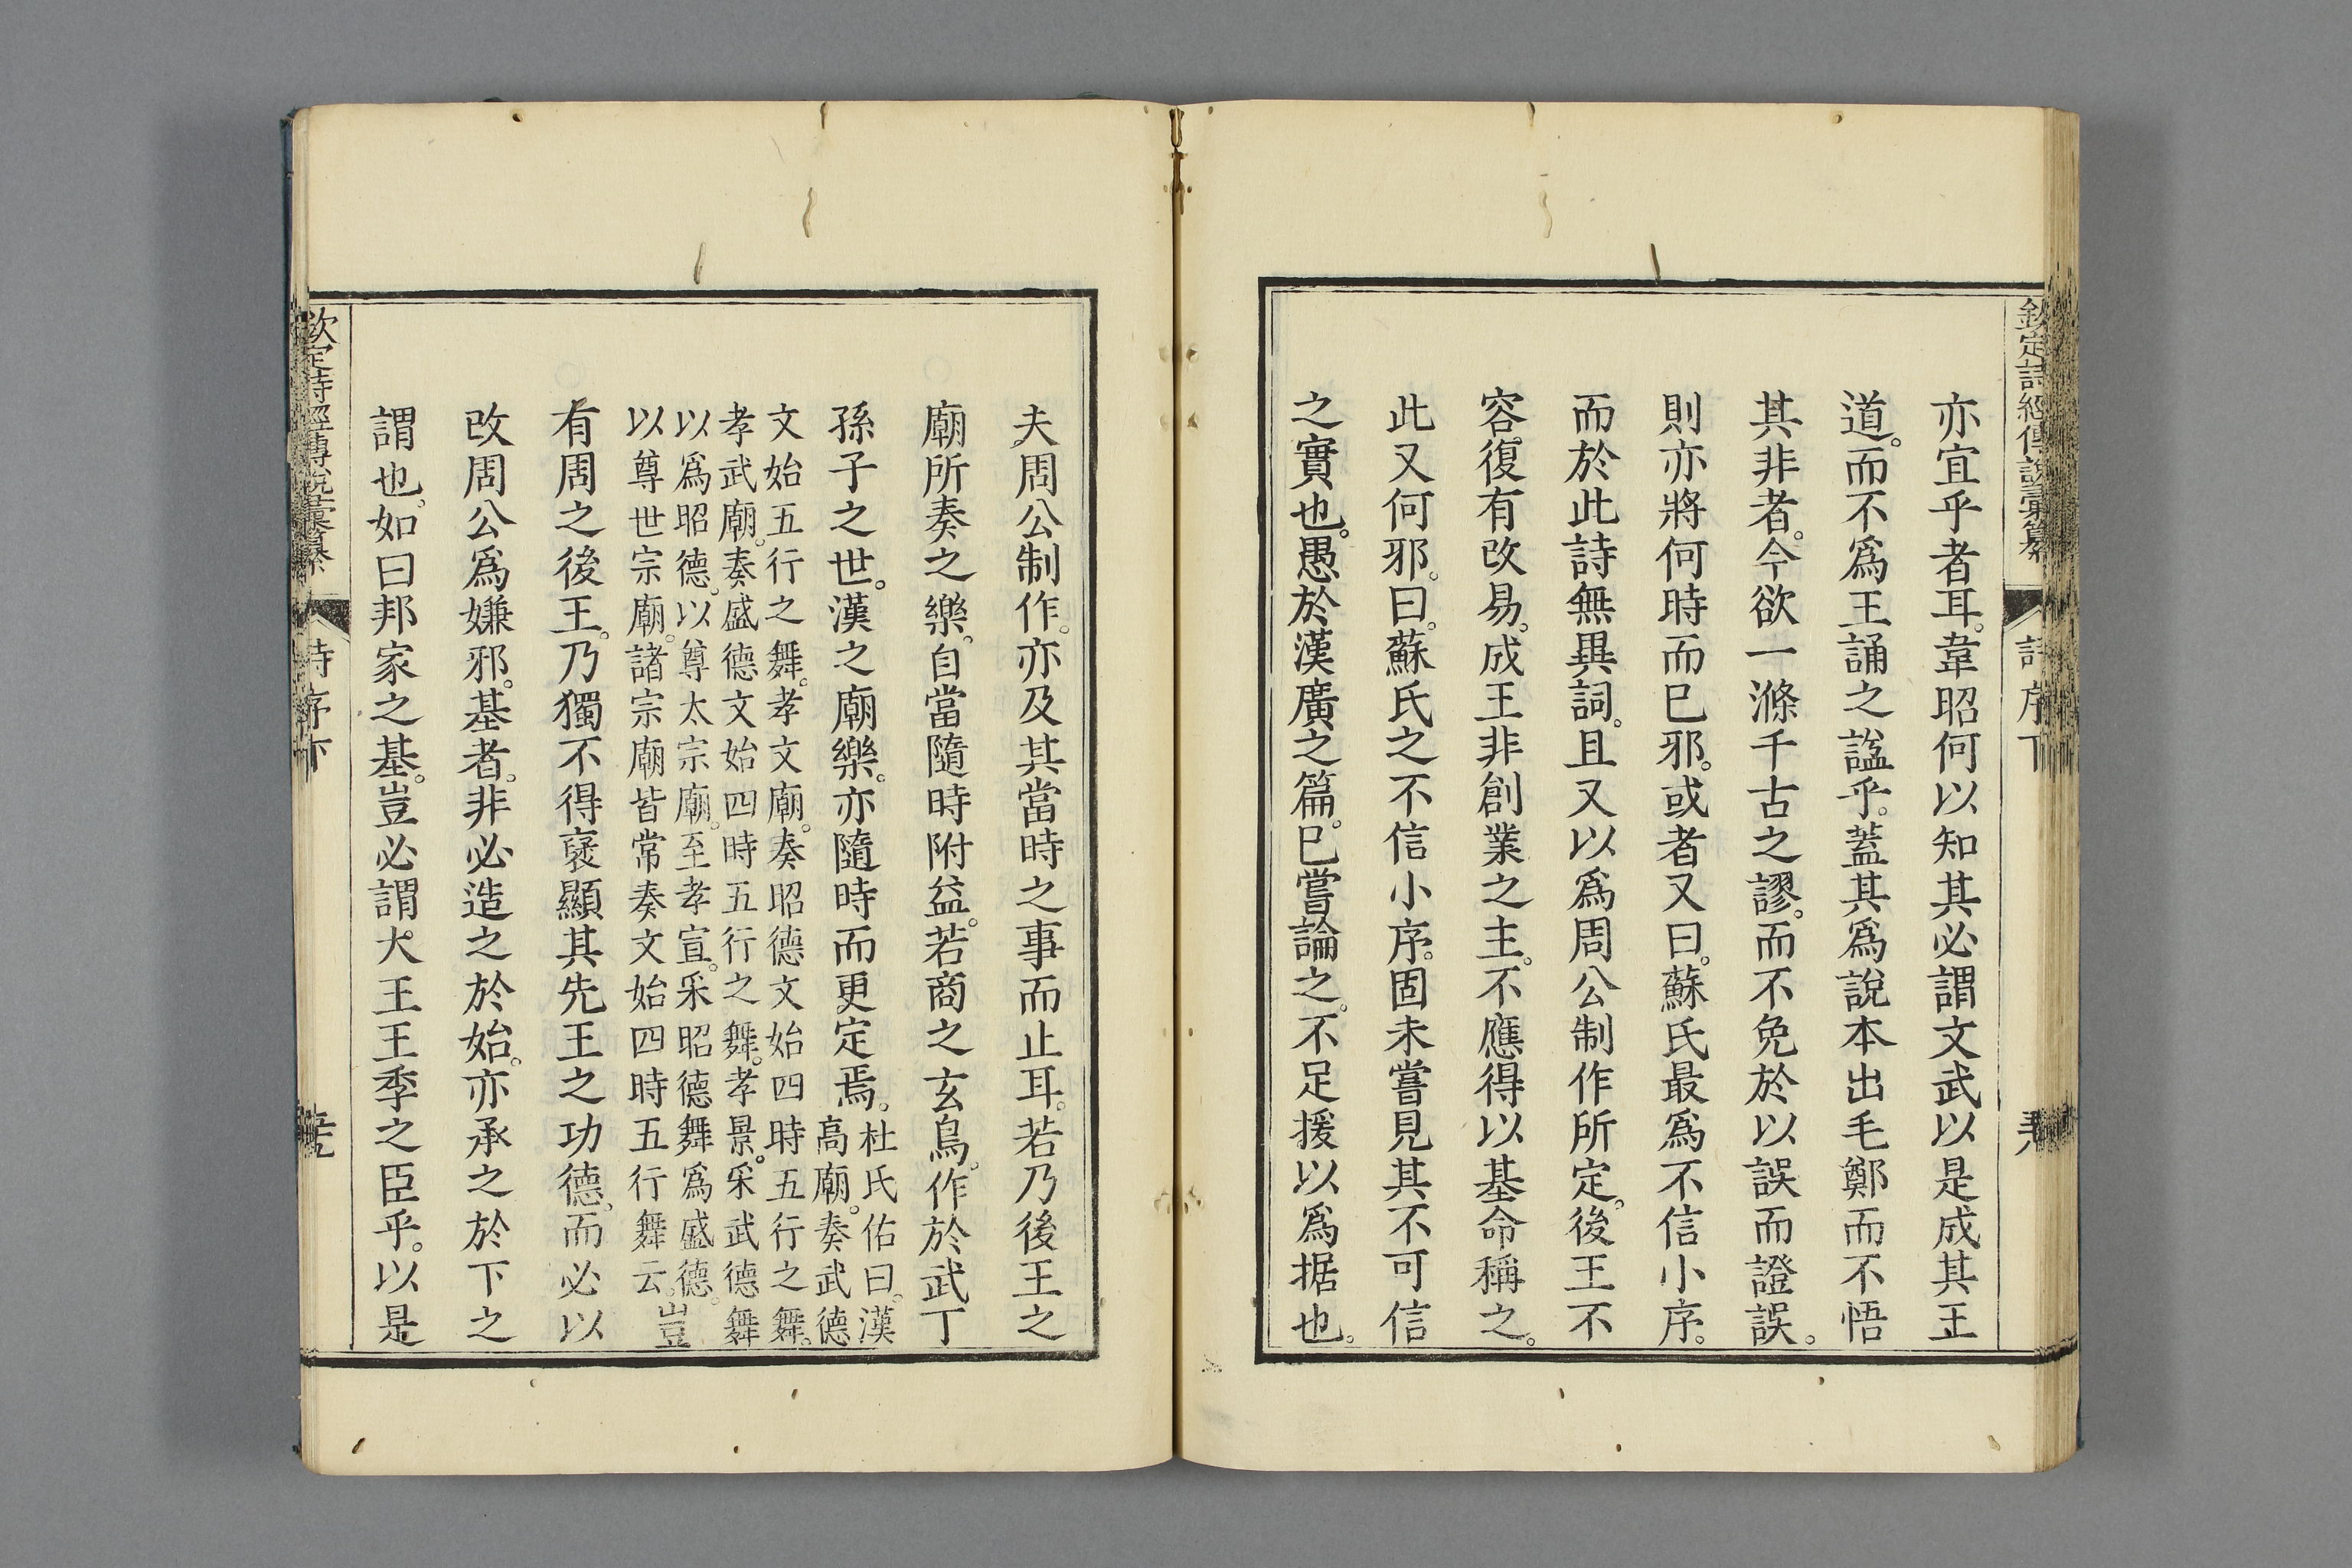 欽定詩經傳說彙纂
詩序下
亦宜乎者耳。韋昭何以知其必謂文武以是成其王
道。而不爲王誦之諡乎。蓋其爲說本出毛鄭而不悟
其非者。今欲一滌千古之謬。而不免於以誤而證誤。
則亦將何時而已邪。或者又曰。蘇氏最爲不信小序。
而於此詩無異詞。且又以爲周公制作所定。後王不
容復有改易。成王非創業之主。不應得以基命稱之。
此又何邪。曰。蘇氏之不信小序。固未嘗見其不可信
之實也。愚於漢廣之篇。已嘗論之。不足援以爲据也。
夫周公制作。亦及其當時之事而止耳。若乃後王之
廟所奏之樂。自當隨時附益。若商之玄鳥。作於武丁
孫子之世。漢之廟樂。亦隨時而更定焉。
杜氏佑曰。漢
高廟。奏武德
文始五行之舞。孝文廟。奏昭德文始四時五行之舞。
孝武廟。奏盛德文始四時五行之舞。孝景。采武德舞
以爲昭德。以尊太宗廟。至孝宣。采昭德舞爲盛德。
以尊世宗廟。諸宗廟皆常奏文始四時五行舞云。
豈
有周之後王。乃獨不得襃顯其先王之功德。而必以
改周公爲嫌邪。基者。非必造之於始。亦承之於下之
謂也。如曰邦家之基。豈必謂大王王季之臣乎。以是
欽定詩經傳說彙纂
詩序下